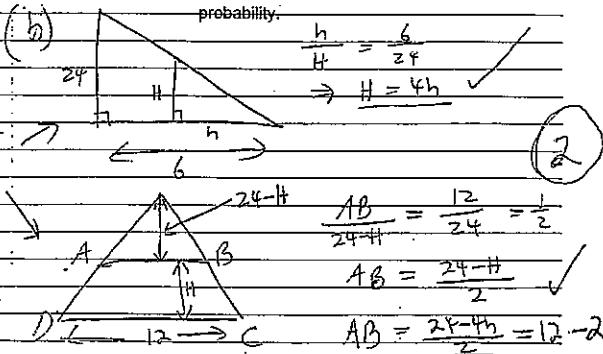 probability.
(b)
24
H
h
6
h/H = 6/24
⇒ H = 4h ✓
2
24-H
A
B
H
D
12
C
AB/24-H = 12/24 = 1/2
AB = 24-H/2 ✓
AB = 24-4h/2 = 12-2